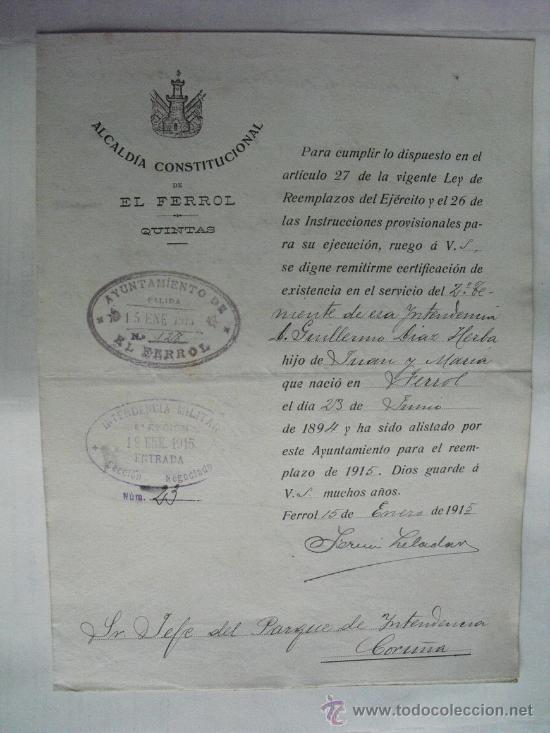 ALCALDÍA CONSTITUCIONAL
DE
EL FERROL
QUINTAS
AYUNTAMIENTO DE
SALIDA
15 ENE 1915
N.º 128
EL FERROL
INTENDENCIA MILITAR
REGION
19 ENE. 1915
ENTRADA
Sección Negociado
Núm. 23
Para cumplir lo dispuesto en el
artículo 27 de la vigente Ley de
Reemplazos del Ejército y el 26 de
las Instrucciones provisionales pa-
ra su ejecución, ruego á V. S.,
se digne remitirme certificación de
existencia en el servicio del 2º Te-
niente de esa Intendencia
D. Guillermo Diaz
hijo de Juan y Maria
que nació en Ferrol
el dia 23 de Junio
de 1894 y ha sido alistado por
este Ayuntamiento para el reem-
plazo de 1915. Dios guarde á
V. S. muchos años.
Ferrol 15 de Enero de 1915
Sr. Jefe del Parque de Intendencia
Coruña
todocoleccion
www.todocoleccion.net